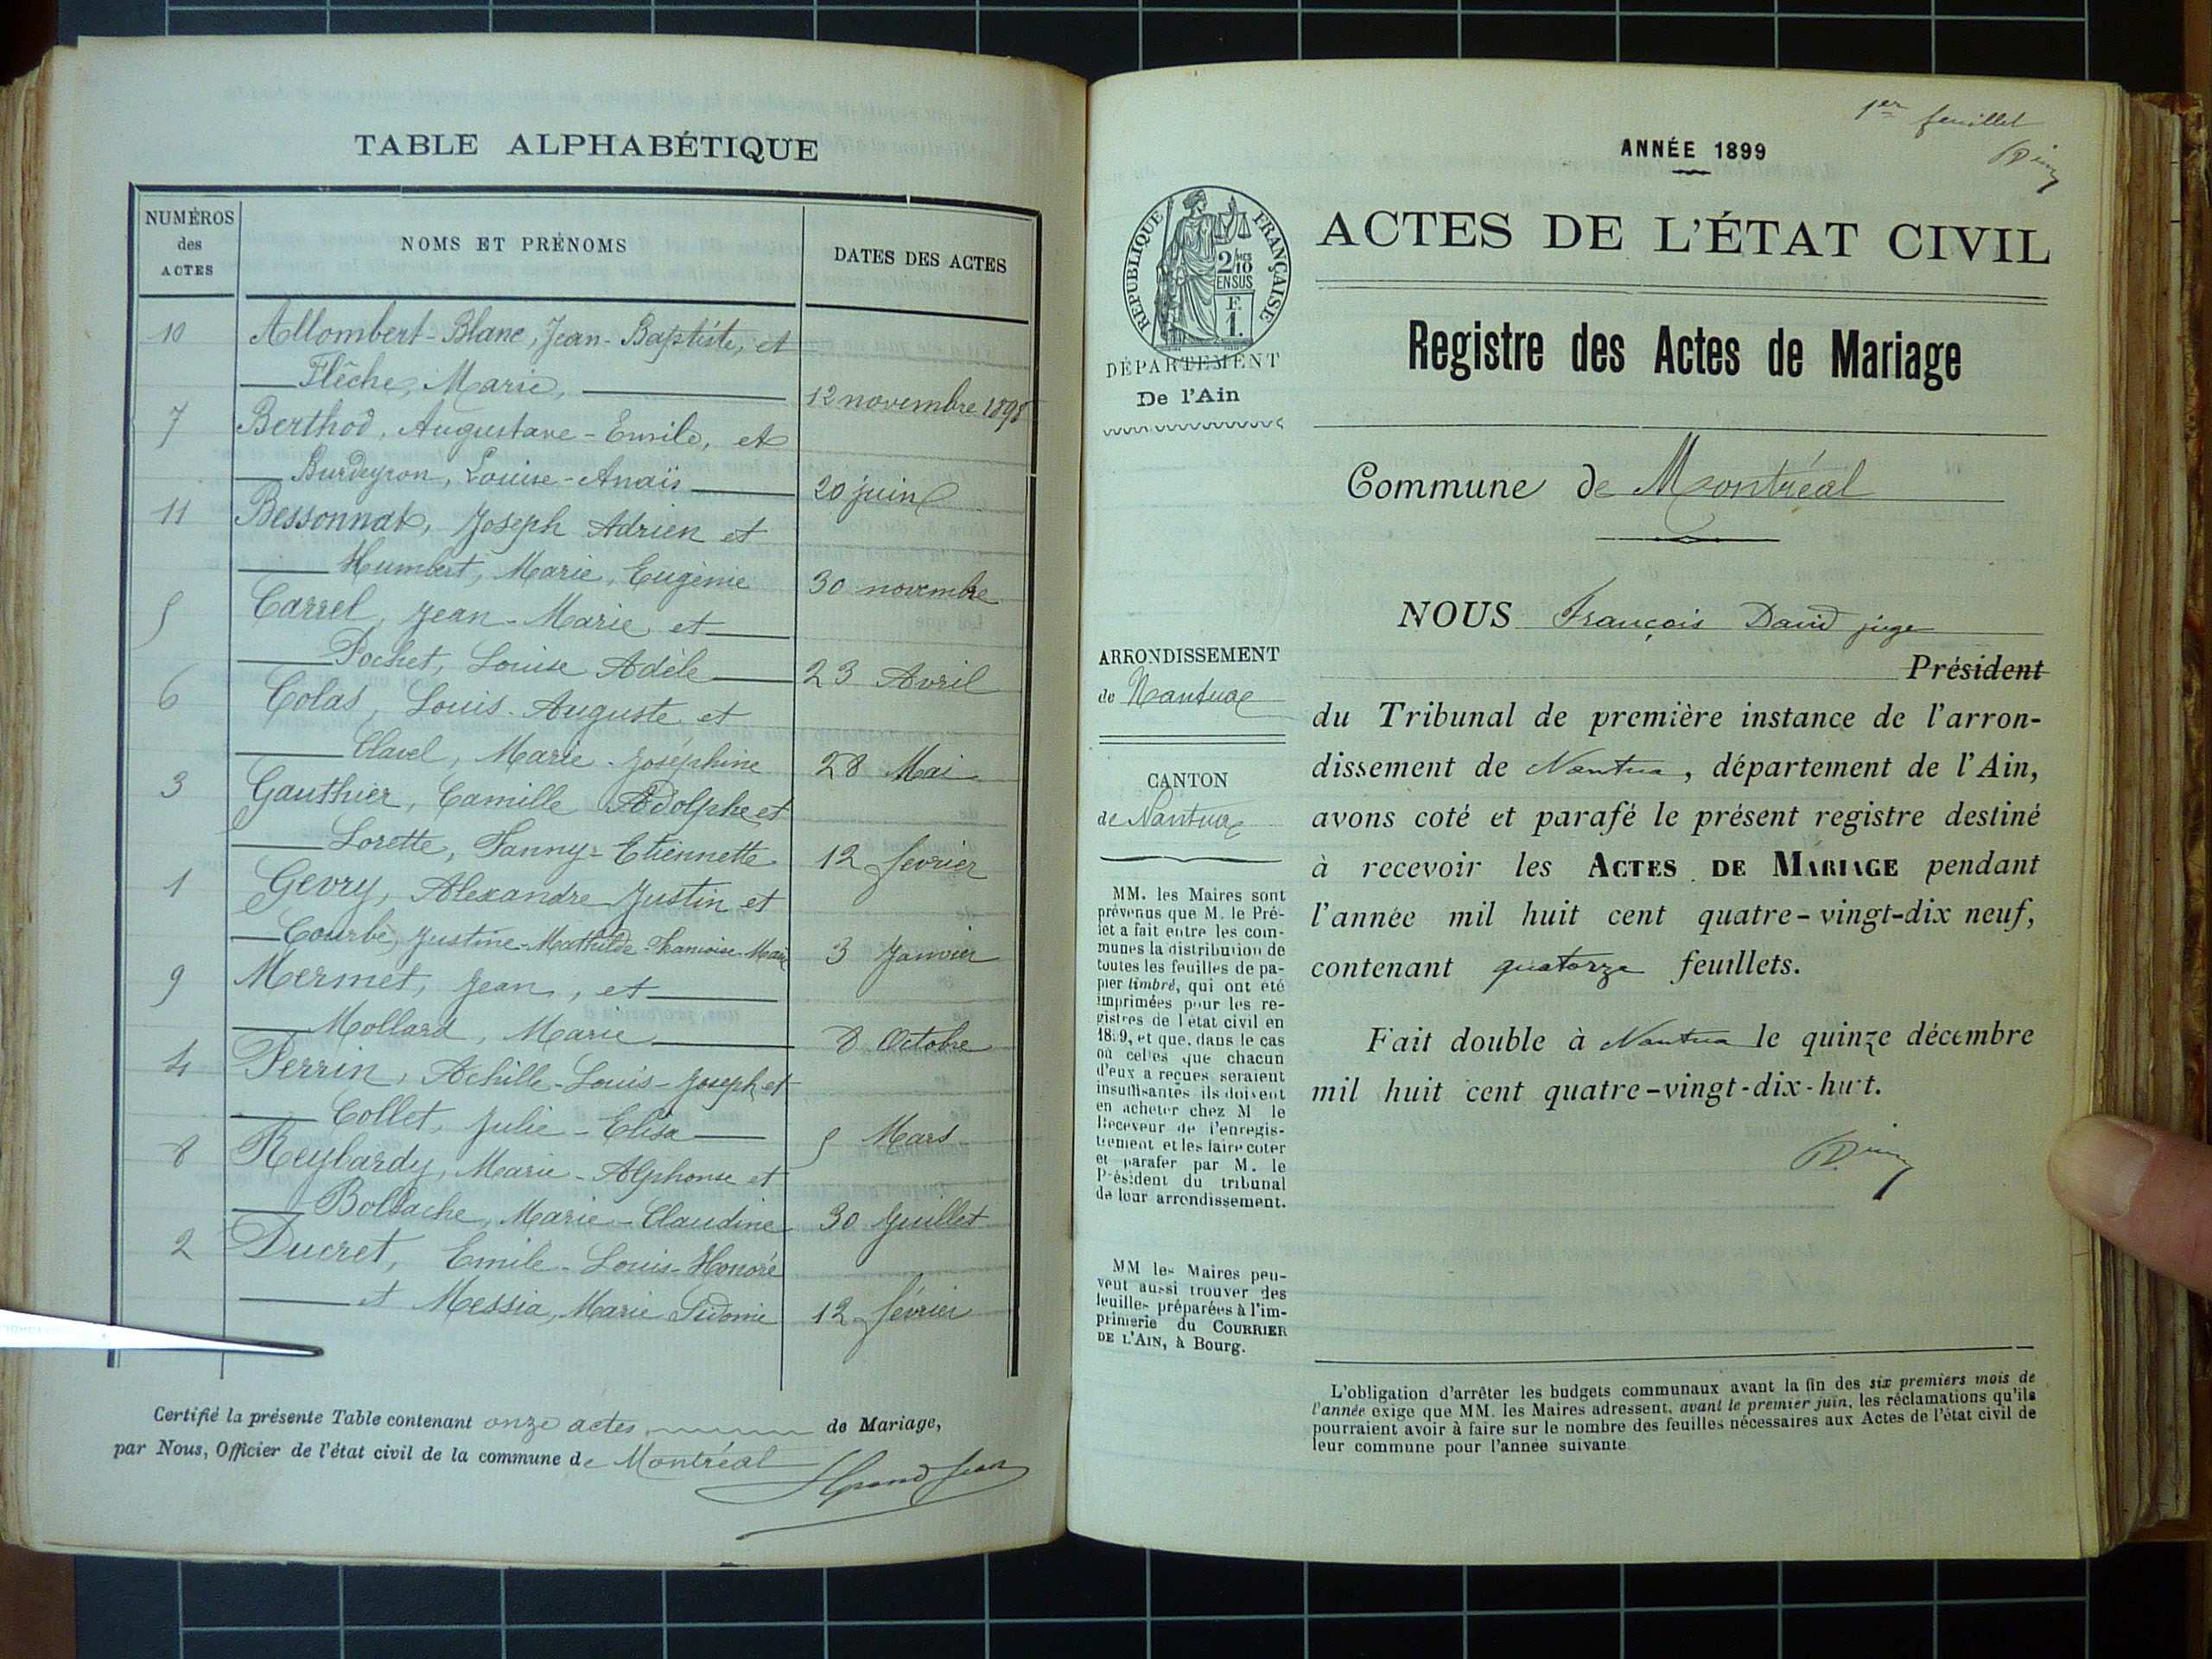 TABLE ALPHABÉTIQUE
NUMÉROS
des
ACTES
NOMS ET PRÉNOMS
DATES DES ACTES
10 Allombert-Blanc, Jean-Baptiste, et
Flêche, Marie, 12 novembre 1898
7 Berthod, Augustave-Emile, et
Burdeyron, Louise-Anaïs 20 juin
11 Bessonnat, Joseph Adrien et
Humbert, Marie, Eugénie 30 novembre
5 Carrel, Jean-Marie et
Pochet, Louise Adèle 23 Avril
6 Colas, Louis-Auguste et
Clavel, Marie-Joséphine 28 Mai
3 Gauthier, Camille Adolphe et
Lorette, Fanny-Etiennette 12 février
1 Gevry, Alexandre Justin et
Courbe, Justine-Mathilde-Francoise-Marie 3 Janvier
9 Mermet, Jean, et
Mollard, Marie 8 Octobre
4 Perrin, Achille-Louis-Joseph et
Collet, Julie-Elisa 5 Mars
8 Reybardy, Marie-Alphonse et
Bollache, Marie-Claudine 30 Juillet
2 Ducret, Emile-Louis-Honoré
et Messia, Marie Sidonie 12 février
Certifié la présente Table contenant onze actes de Mariage,
par Nous, Officier de l'état civil de la commune de Montréal
Grandjean
1er feuillet
ANNÉE 1899
RÉPUBLIQUE FRANÇAISE
2/10
EN SUS
F.
1.
DÉPARTEMENT
De l'Ain
ACTES DE L'ÉTAT CIVIL
Registre des Actes de Mariage
Commune de Montréal
ARRONDISSEMENT
de Nantua
CANTON
de Nantua
MM. les Maires sont
prévenus que M. le Pré-
fet a fait entre les com-
munes la distribution de
toutes les feuilles de pa-
pier timbré, qui ont été
imprimées pour les re-
gistres de l'état civil en
1899, et que, dans le cas
où celles que chacun
d'eux a reçues seraient
insuffisantes ils doivent
en acheter chez M le
Receveur de l'enregis-
trement et les faire coter
et parafer par M. le
Président du tribunal
de leur arrondissement.
MM les Maires peu-
vent aussi trouver des
feuilles préparées à l'im-
primerie du COURRIER
DE L'AIN, à Bourg.
NOUS François David juge
Président
du Tribunal de première instance de l'arron-
dissement de Nantua, département de l'Ain,
avons coté et parafé le présent registre destiné
à recevoir les ACTES DE MARIAGE pendant
l'année mil huit cent quatre-vingt-dix neuf,
contenant quatorze feuillets.
Fait double à Nantua le quinze décembre
mil huit cent quatre-vingt-dix-huit.
L'obligation d'arrêter les budgets communaux avant la fin des six premiers mois de
l'année exige que MM. les Maires adressent, avant le premier juin, les réclamations qu'ils
pourraient avoir à faire sur le nombre des feuilles nécessaires aux Actes de l'état civil de
leur commune pour l'année suivante